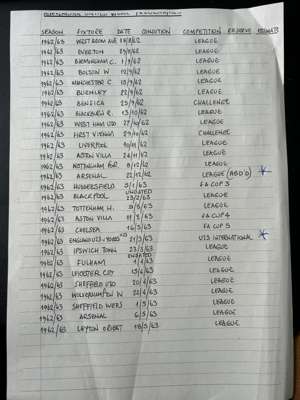 SEASON FIXTURE DATE CONDITION COMPETITION RESERVE ESTIMATE
1962/63 WEST BROM ALB 18/8/62 LEAGUE
1962/63 EVERTON /8/62 LEAGUE
1962/63 BIRMINGHAM C. 1/9/62 LEAGUE
1962/63 BOLTON W 12/9/62 LEAGUE
1962/63 MANCHESTER C 15/9/62 LEAGUE
1962/63 BURNLEY 22/9/62 LEAGUE
1962/63 BENFICA 25/9/62 CHALLENGE
1962/63 BLACKBURN R. 13/10/62 LEAGUE
1962/63 WEST HAM UTD 27/10/62 LEAGUE
1962/63 FIRST VIENNA 29/10/62 CHALLENGE
1962/63 LIVERPOOL 10/11/62 LEAGUE
1962/63 ASTON VILLA 24/11/62 LEAGUE
1962/63 NOTTINGHAM FOR. 8/12/62 LEAGUE
1962/63 ARSENAL 22/12/62 LEAGUE (ABD'D) *
1962/63 HUDDERSFIELD 5/1/63 F A CUP 3
1962/63 BLACKPOOL UNDATED 23/2/63 LEAGUE
1962/63 TOTTENHAM H. 9/3/63 LEAGUE
1962/63 ASTON VILLA 11/3/63 FA CUP 4
1962/63 CHELSEA 16/3/63 FA CUP 5
1962/63 ENGLAND U23 v YUGO U23 21/3/63 U23 INTERNATIONAL *
1962/63 IPSWICH TOWN 23/3/63 LEAGUE
1962/63 FULHAM UNDATED 1/4/63 LEAGUE
1962/63 LEICESTER CITY 15/4/63 LEAGUE
1962/63 SHEFFIELD UTD 20/4/63 LEAGUE
1962/63 WOLVERHAMPTON W 22/4/63 LEAGUE
1962/63 SHEFFIELD WEDS 1/5/63 LEAGUE
1962/63 ARSENAL 6/5/63 LEAGUE
1962/63 LEYTON ORIENT 18/5/63 LEAGUE